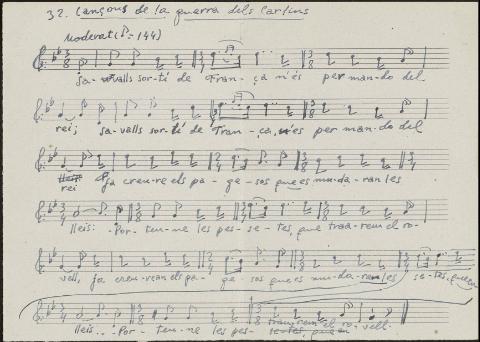 32. Cançons de la guerra dels Carlins
Moderat (♪=144)
Sa-valls sor-ti de Fran-ça n'és per man-do del
rei; Sa-valls sor-ti de Fran-ça, n'és per man-do del
rei fa creu-re els pa-ge-sos que es mu-da-ran les
lleis. -Por-teu-ne les pes-se-tes, que trau-rem el ro-
vell, fa creu-re an els pa-ge-sos que es mu-da-ran les
lleis.. -Por-teu-ne les pes-se-tes, que en
traurem el ro-vell.